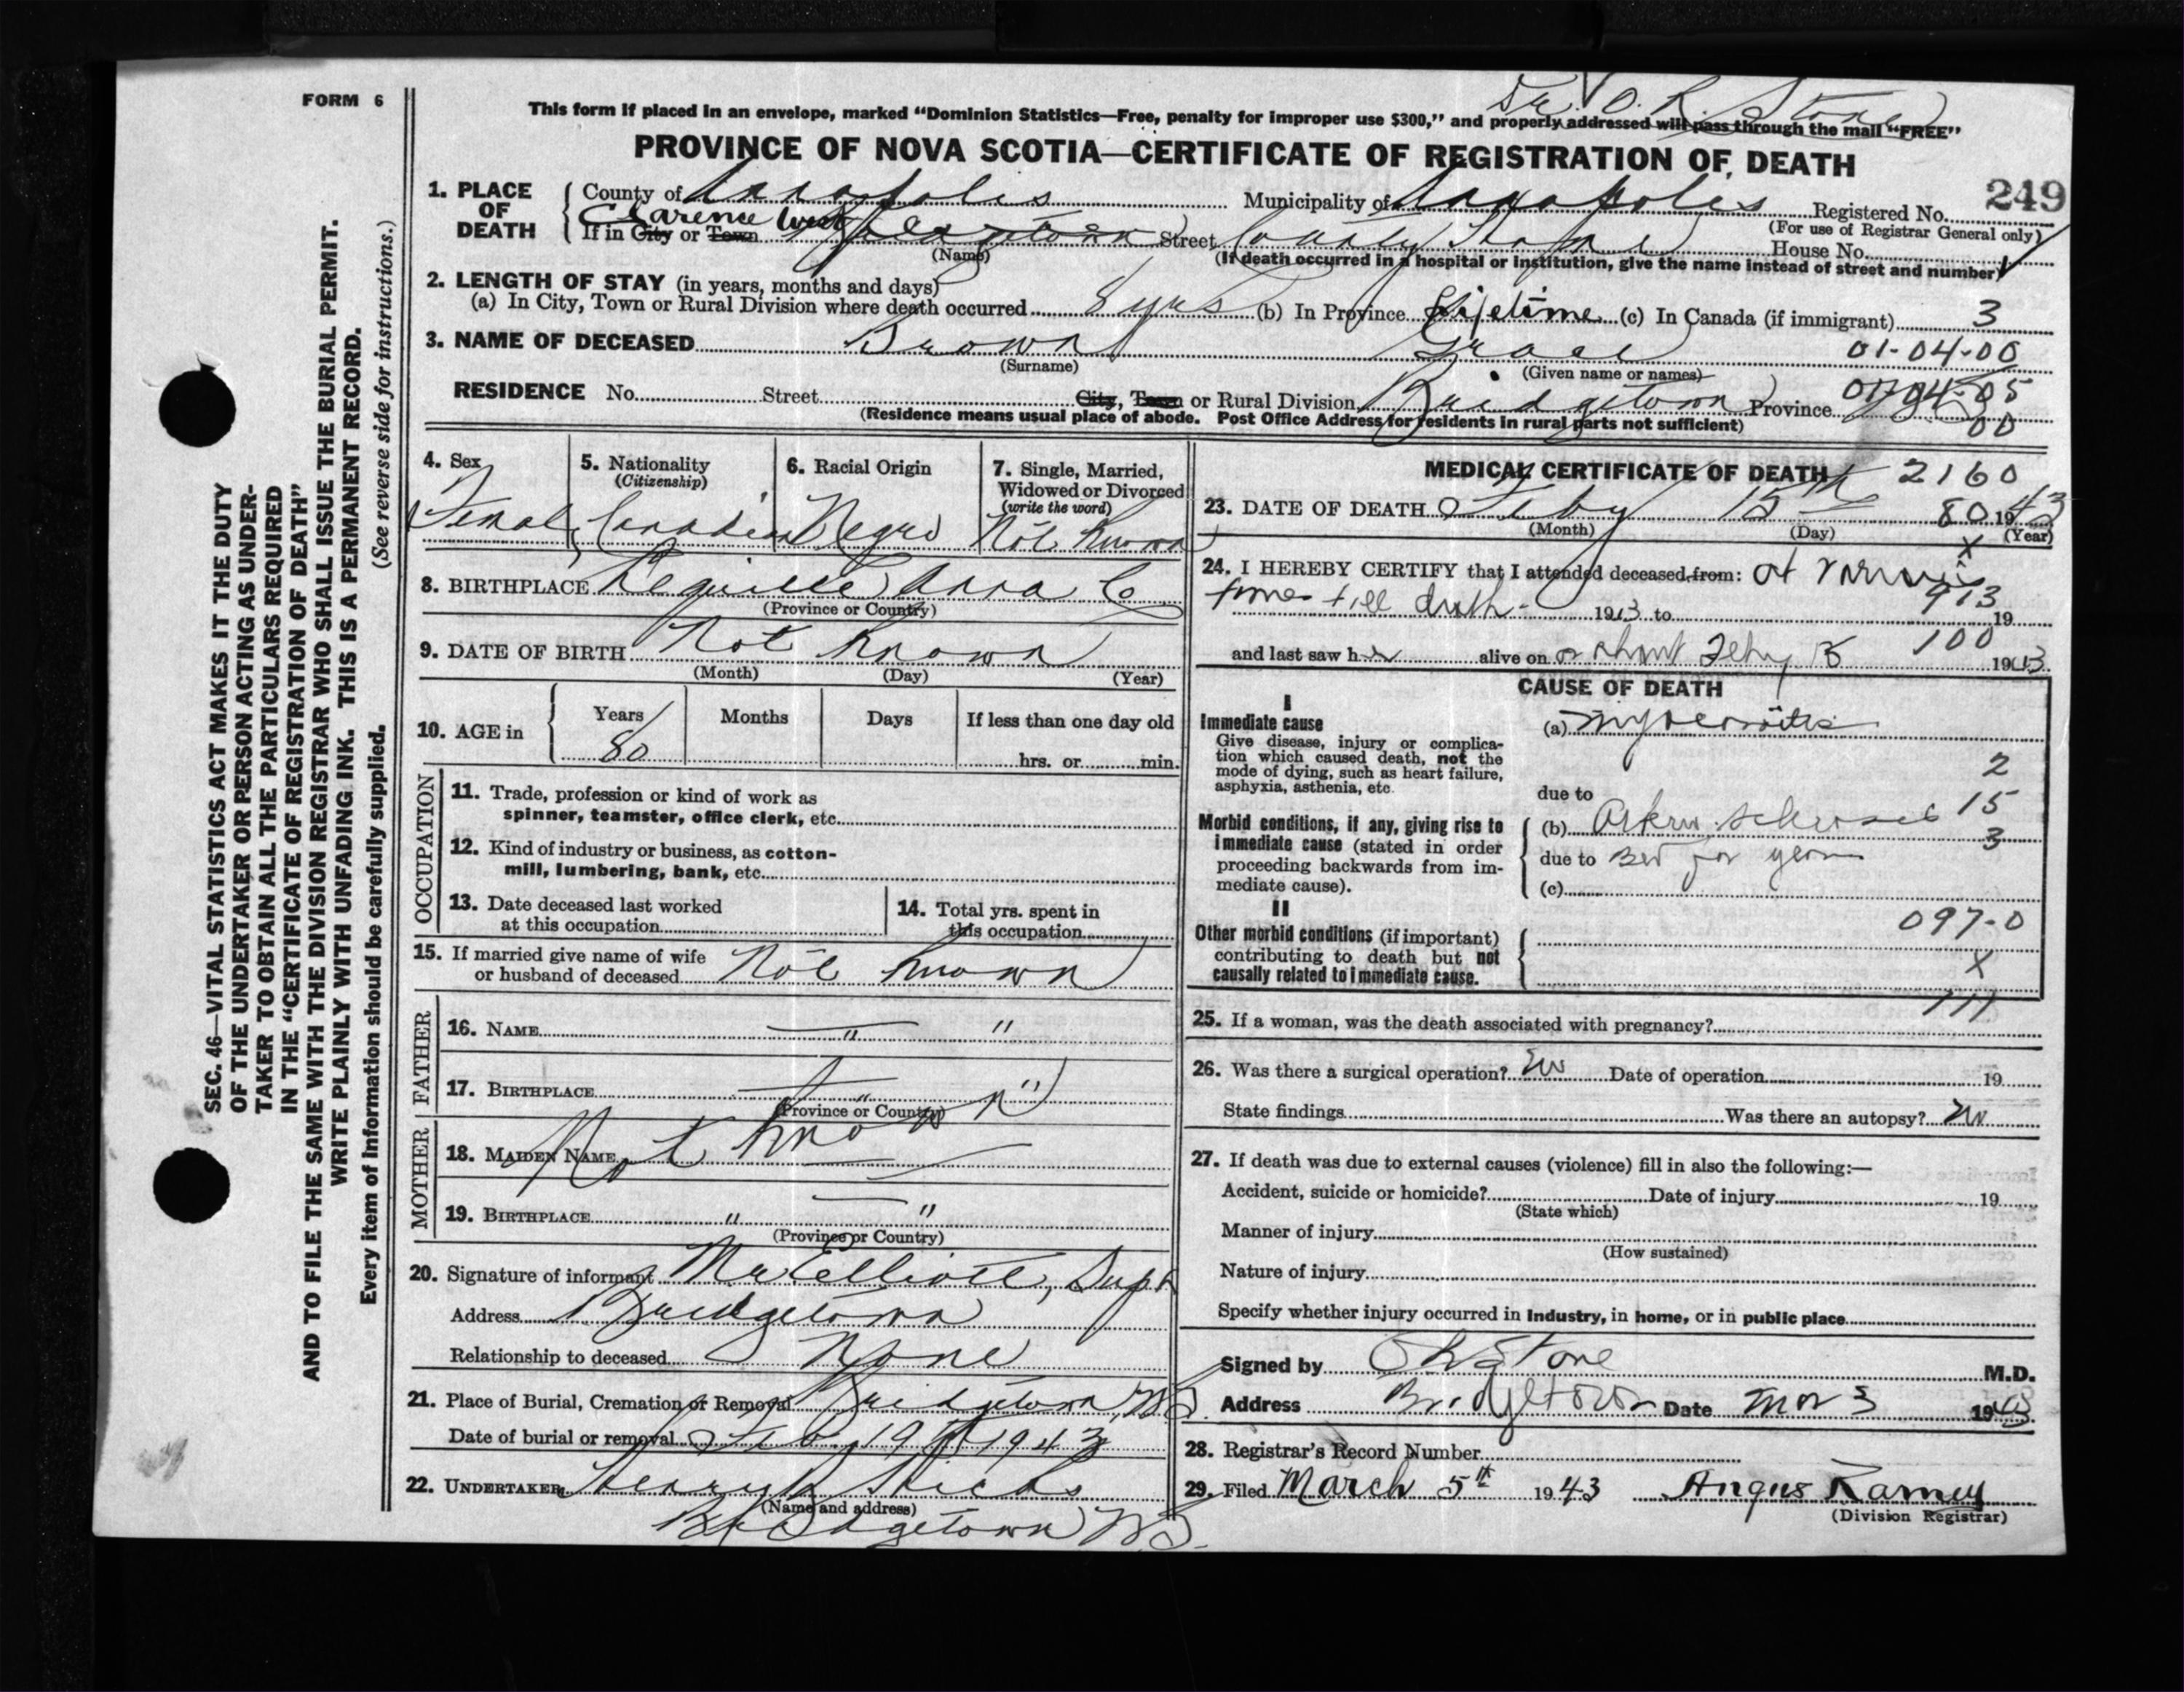 FORM 6
Dr. O. R. Stone
This form if placed in an envelope, marked "Dominion Statistics—Free, penalty for improper use $300," and properly addressed will pass through the mail "FREE"
PROVINCE OF NOVA SCOTIA—CERTIFICATE OF REGISTRATION OF DEATH
249
1. PLACE OF DEATH
County of Annapolis Municipality of Annapolis Registered No.
(For use of Registrar General only)
Clarence West
If in City or Town Street County Home House No.
(Name) (If death occurred in a hospital or institution, give the name instead of street and number)
2. LENGTH OF STAY (in years, months and days)
(a) In City, Town or Rural Division where death occurred 8 yrs (b) In Province Lifetime (c) In Canada (if immigrant) 3
3. NAME OF DECEASED Brown Grace 01-04-00
(Surname) (Given name or names)
RESIDENCE No. Street City, Town or Rural Division Bridgetown Province 04-05
(Residence means usual place of abode. Post Office Address for residents in rural parts not sufficient) 00
4. Sex
Female
5. Nationality
(Citizenship)
Canadian
6. Racial Origin
Negro
7. Single, Married,
Widowed or Divorced
(write the word)
Not Known
8. BIRTHPLACE Lequille Anna Co
(Province or Country)
9. DATE OF BIRTH Not Known
(Month) (Day) (Year)
10. AGE in Years Months Days If less than one day old
80 hrs. or min.
OCCUPATION
11. Trade, profession or kind of work as
spinner, teamster, office clerk, etc.
12. Kind of industry or business, as cotton-
mill, lumbering, bank, etc.
13. Date deceased last worked
at this occupation
14. Total yrs. spent in
this occupation
15. If married give name of wife
or husband of deceased Not Known
FATHER
16. NAME " "
17. BIRTHPLACE " "
(Province or Country)
MOTHER
18. MAIDEN NAME Not Known
19. BIRTHPLACE " "
(Province or Country)
20. Signature of informant Elliott, Supt
Address Bridgetown
Relationship to deceased None
21. Place of Burial, Cremation or Removal Bridgetown, NS
Date of burial or removal Feb 19th 1943
22. UNDERTAKER Henry Hicks
(Name and address)
Bridgetown NS.
MEDICAL CERTIFICATE OF DEATH 2160
23. DATE OF DEATH Feby 15th 80 1943
(Month) (Day) (Year)
X
24. I HEREBY CERTIFY that I attended deceased from: at various
times till death 1943 to 913 19
and last saw her alive on or about Feby 1943
100
CAUSE OF DEATH
I
Immediate cause
Give disease, injury or complica-
tion which caused death, not the
mode of dying, such as heart failure,
asphyxia, asthenia, etc.
(a) Myocarditis
2
due to
Morbid conditions, if any, giving rise to
immediate cause (stated in order
proceeding backwards from im-
mediate cause).
(b) Arterio sclerosis 15
3
due to Bed for years
(c)
II
Other morbid conditions (if important)
contributing to death but not
causally related to immediate cause.
097-0
X
111
25. If a woman, was the death associated with pregnancy?
26. Was there a surgical operation? No Date of operation 19
State findings Was there an autopsy? No
27. If death was due to external causes (violence) fill in also the following:—
Accident, suicide or homicide? Date of injury 19
(State which)
Manner of injury
(How sustained)
Nature of injury
Specify whether injury occurred in industry, in home, or in public place
Signed by O R Stone M.D.
Address Bridgetown Date Mar 3 1943
28. Registrar's Record Number
29. Filed March 5th 1943 Angus Ramey
(Division Registrar)
SEC. 46—VITAL STATISTICS ACT MAKES IT THE DUTY
OF THE UNDERTAKER OR PERSON ACTING AS UNDER-
TAKER TO OBTAIN ALL THE PARTICULARS REQUIRED
IN THE "CERTIFICATE OF REGISTRATION OF DEATH"
AND TO FILE THE SAME WITH THE DIVISION REGISTRAR WHO SHALL ISSUE THE BURIAL PERMIT.
WRITE PLAINLY WITH UNFADING INK. THIS IS A PERMANENT RECORD.
Every item of information should be carefully supplied. (See reverse side for instructions.)